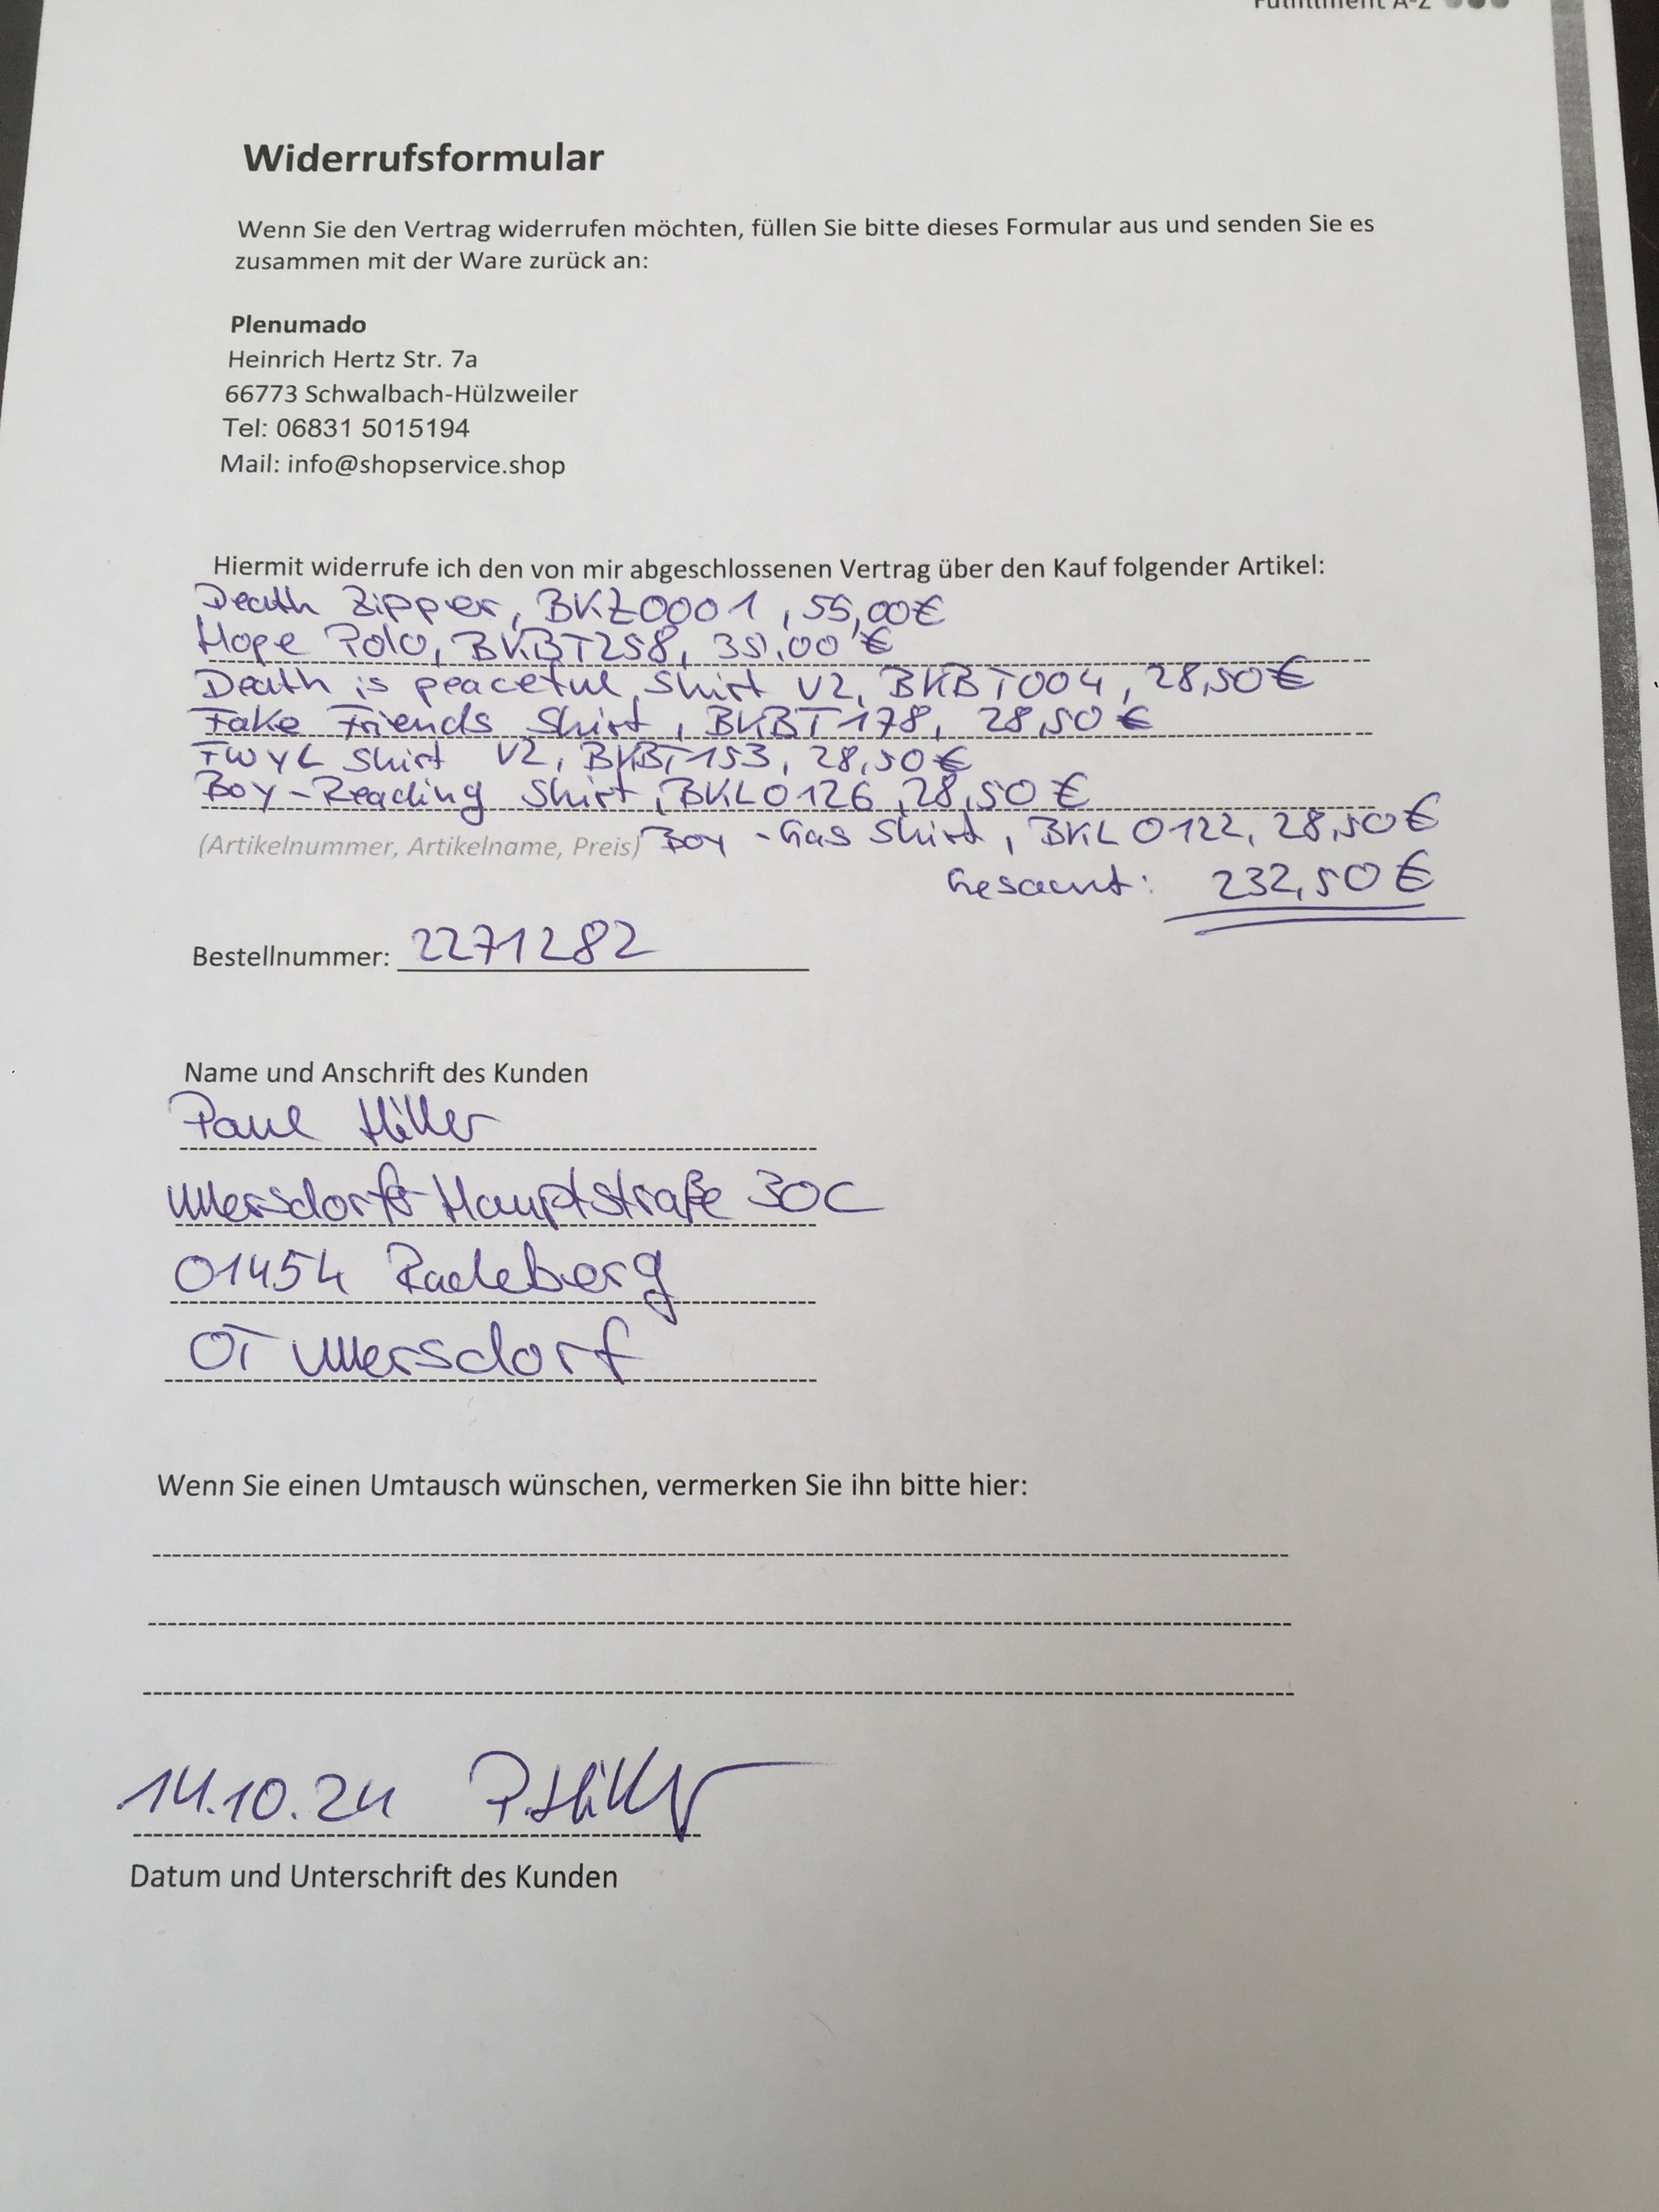 Fulfillment A-Z
Widerrufsformular
Wenn Sie den Vertrag widerrufen möchten, füllen Sie bitte dieses Formular aus und senden Sie es
zusammen mit der Ware zurück an:
Plenumado
Heinrich Hertz Str. 7a
66773 Schwalbach-Hülzweiler
Tel: 06831 5015194
Mail: info@shopservice.shop
Hiermit widerrufe ich den von mir abgeschlossenen Vertrag über den Kauf folgender Artikel:
Death Zipper, BKZ0001, 55,00€
Hope Polo, BKBT258, 35,00€
Death is peaceful Shirt V2, BKBT004, 28,50€
Fake Friends Shirt, BKBT178, 28,50€
FWYL Shirt V2, BKBT153, 28,50€
Boy-Reading Shirt, BKL0126, 28,50€
(Artikelnummer, Artikelname, Preis) Boy-Gas Shirt, BKL0122, 28,50€
Gesamt: 232,50€
Bestellnummer: 2271282
Name und Anschrift des Kunden
Paul Hiller
Ullersdorfer Hauptstraße 30C
01454 Radeberg
OT Ullersdorf
Wenn Sie einen Umtausch wünschen, vermerken Sie ihn bitte hier:
14.10.24 P. Hiller
Datum und Unterschrift des Kunden